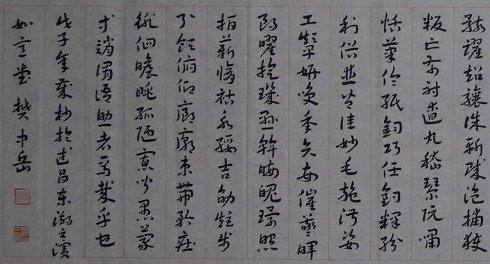 駭躍超驤誅斬賊盜捕獲
叛亡布射遼丸嵇琴阮嘯
恬筆倫紙鈞巧任釣釋紛
利俗並皆佳妙毛施淑姿
工顰妍笑年矢每催曦暉
朗曜璇璣懸斡晦魄環照
指薪修祜永綏吉劭矩步
引領俯仰廊廟束帶矜莊
徘徊瞻眺孤陋寡聞愚蒙
等誚謂語助者焉哉乎也
戊子年杪於武昌東湖之濱
樊中岳